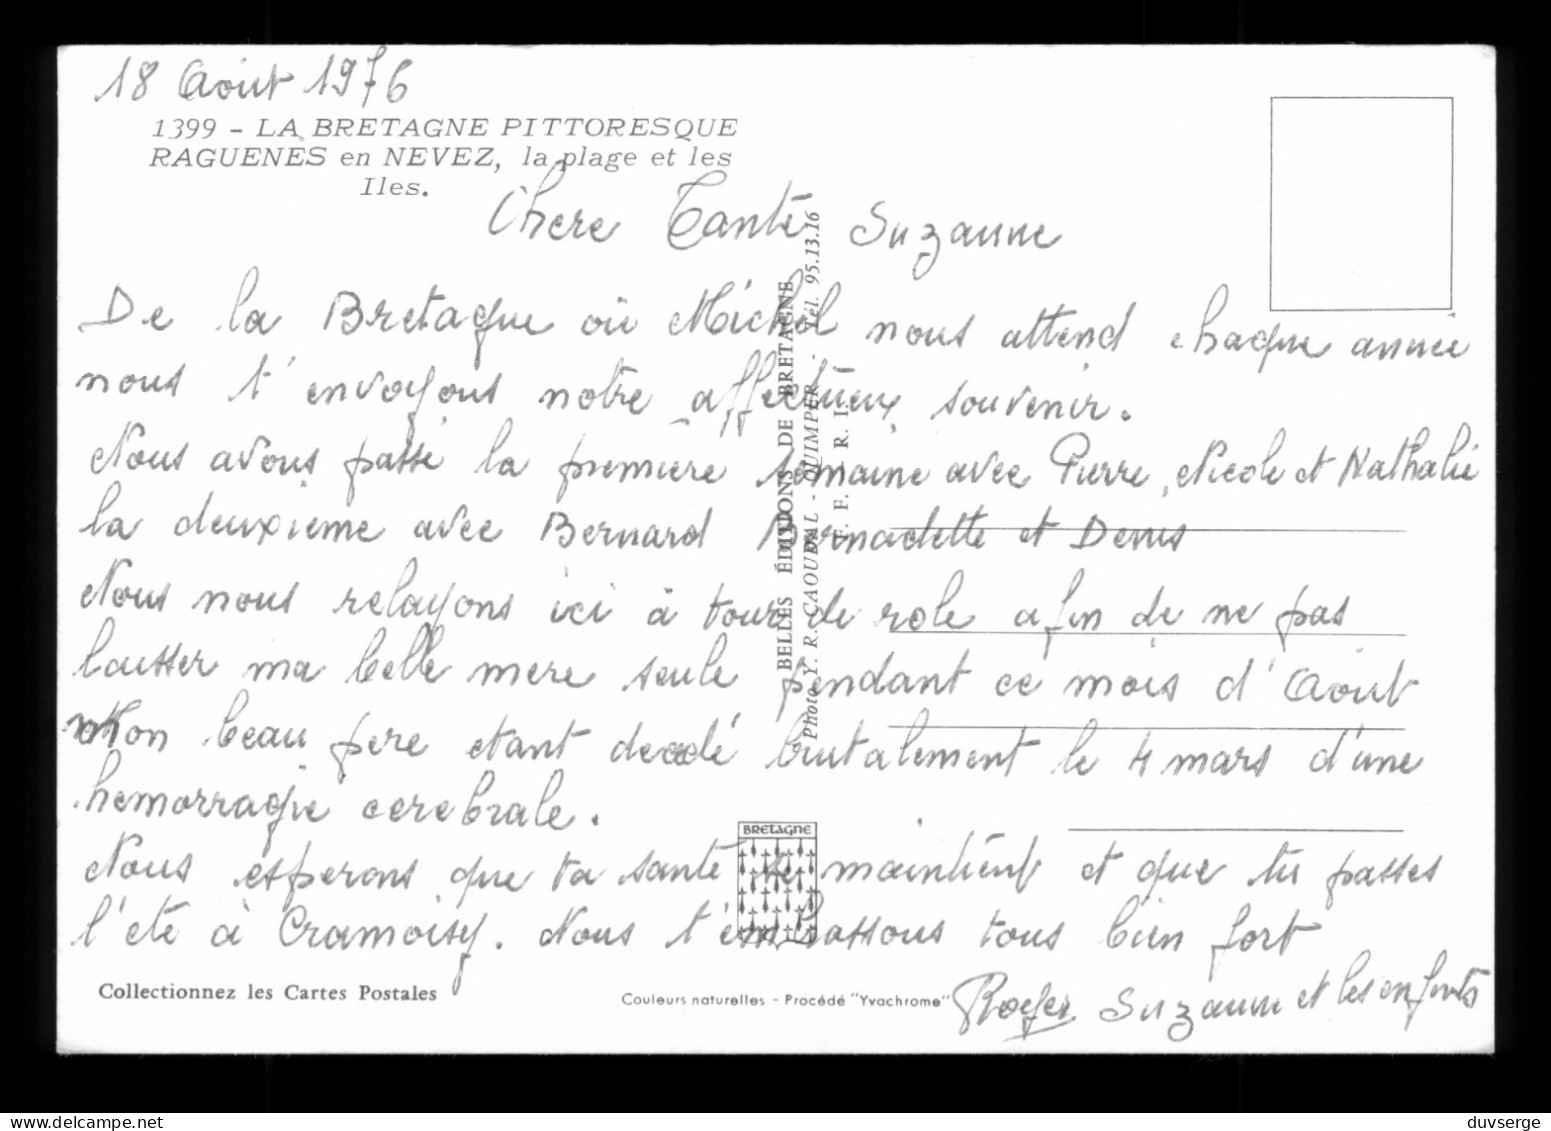 18 Août 1976
1399 - LA BRETAGNE PITTORESQUE
RAGUENES en NEVEZ, la plage et les
Iles.
Chere Tante Suzanne
De la Bretagne où Michel nous attend chaque année
nous t'envoyons notre affectueux souvenir.
Nous avons passé la première semaine avec Pierre, Nicole et Nathalie
la deuxieme avec Bernard Bernadette et Denis
Nous nous relayons ici à tour de role afin de ne pas
laisser ma belle mere seule pendant ce mois d'Août
Mon beau pere etant decedé brutalement le 4 mars d'une
hemorragie cerebrale.
Nous esperons que ta santé se maintient et que tu passes
l'eté à Cramoisy. Nous t'embrassons tous bien fort
Roger Suzanne et les enfants
BELLES ÉDITIONS DE BRETAGNE
Photo Y. R. CAOUDAL - QUIMPER - Tél. 95.13.16
F. F. R. I.
BRETAGNE
Collectionnez les Cartes Postales
Couleurs naturelles - Procédé "Yvachrome"
duvserge